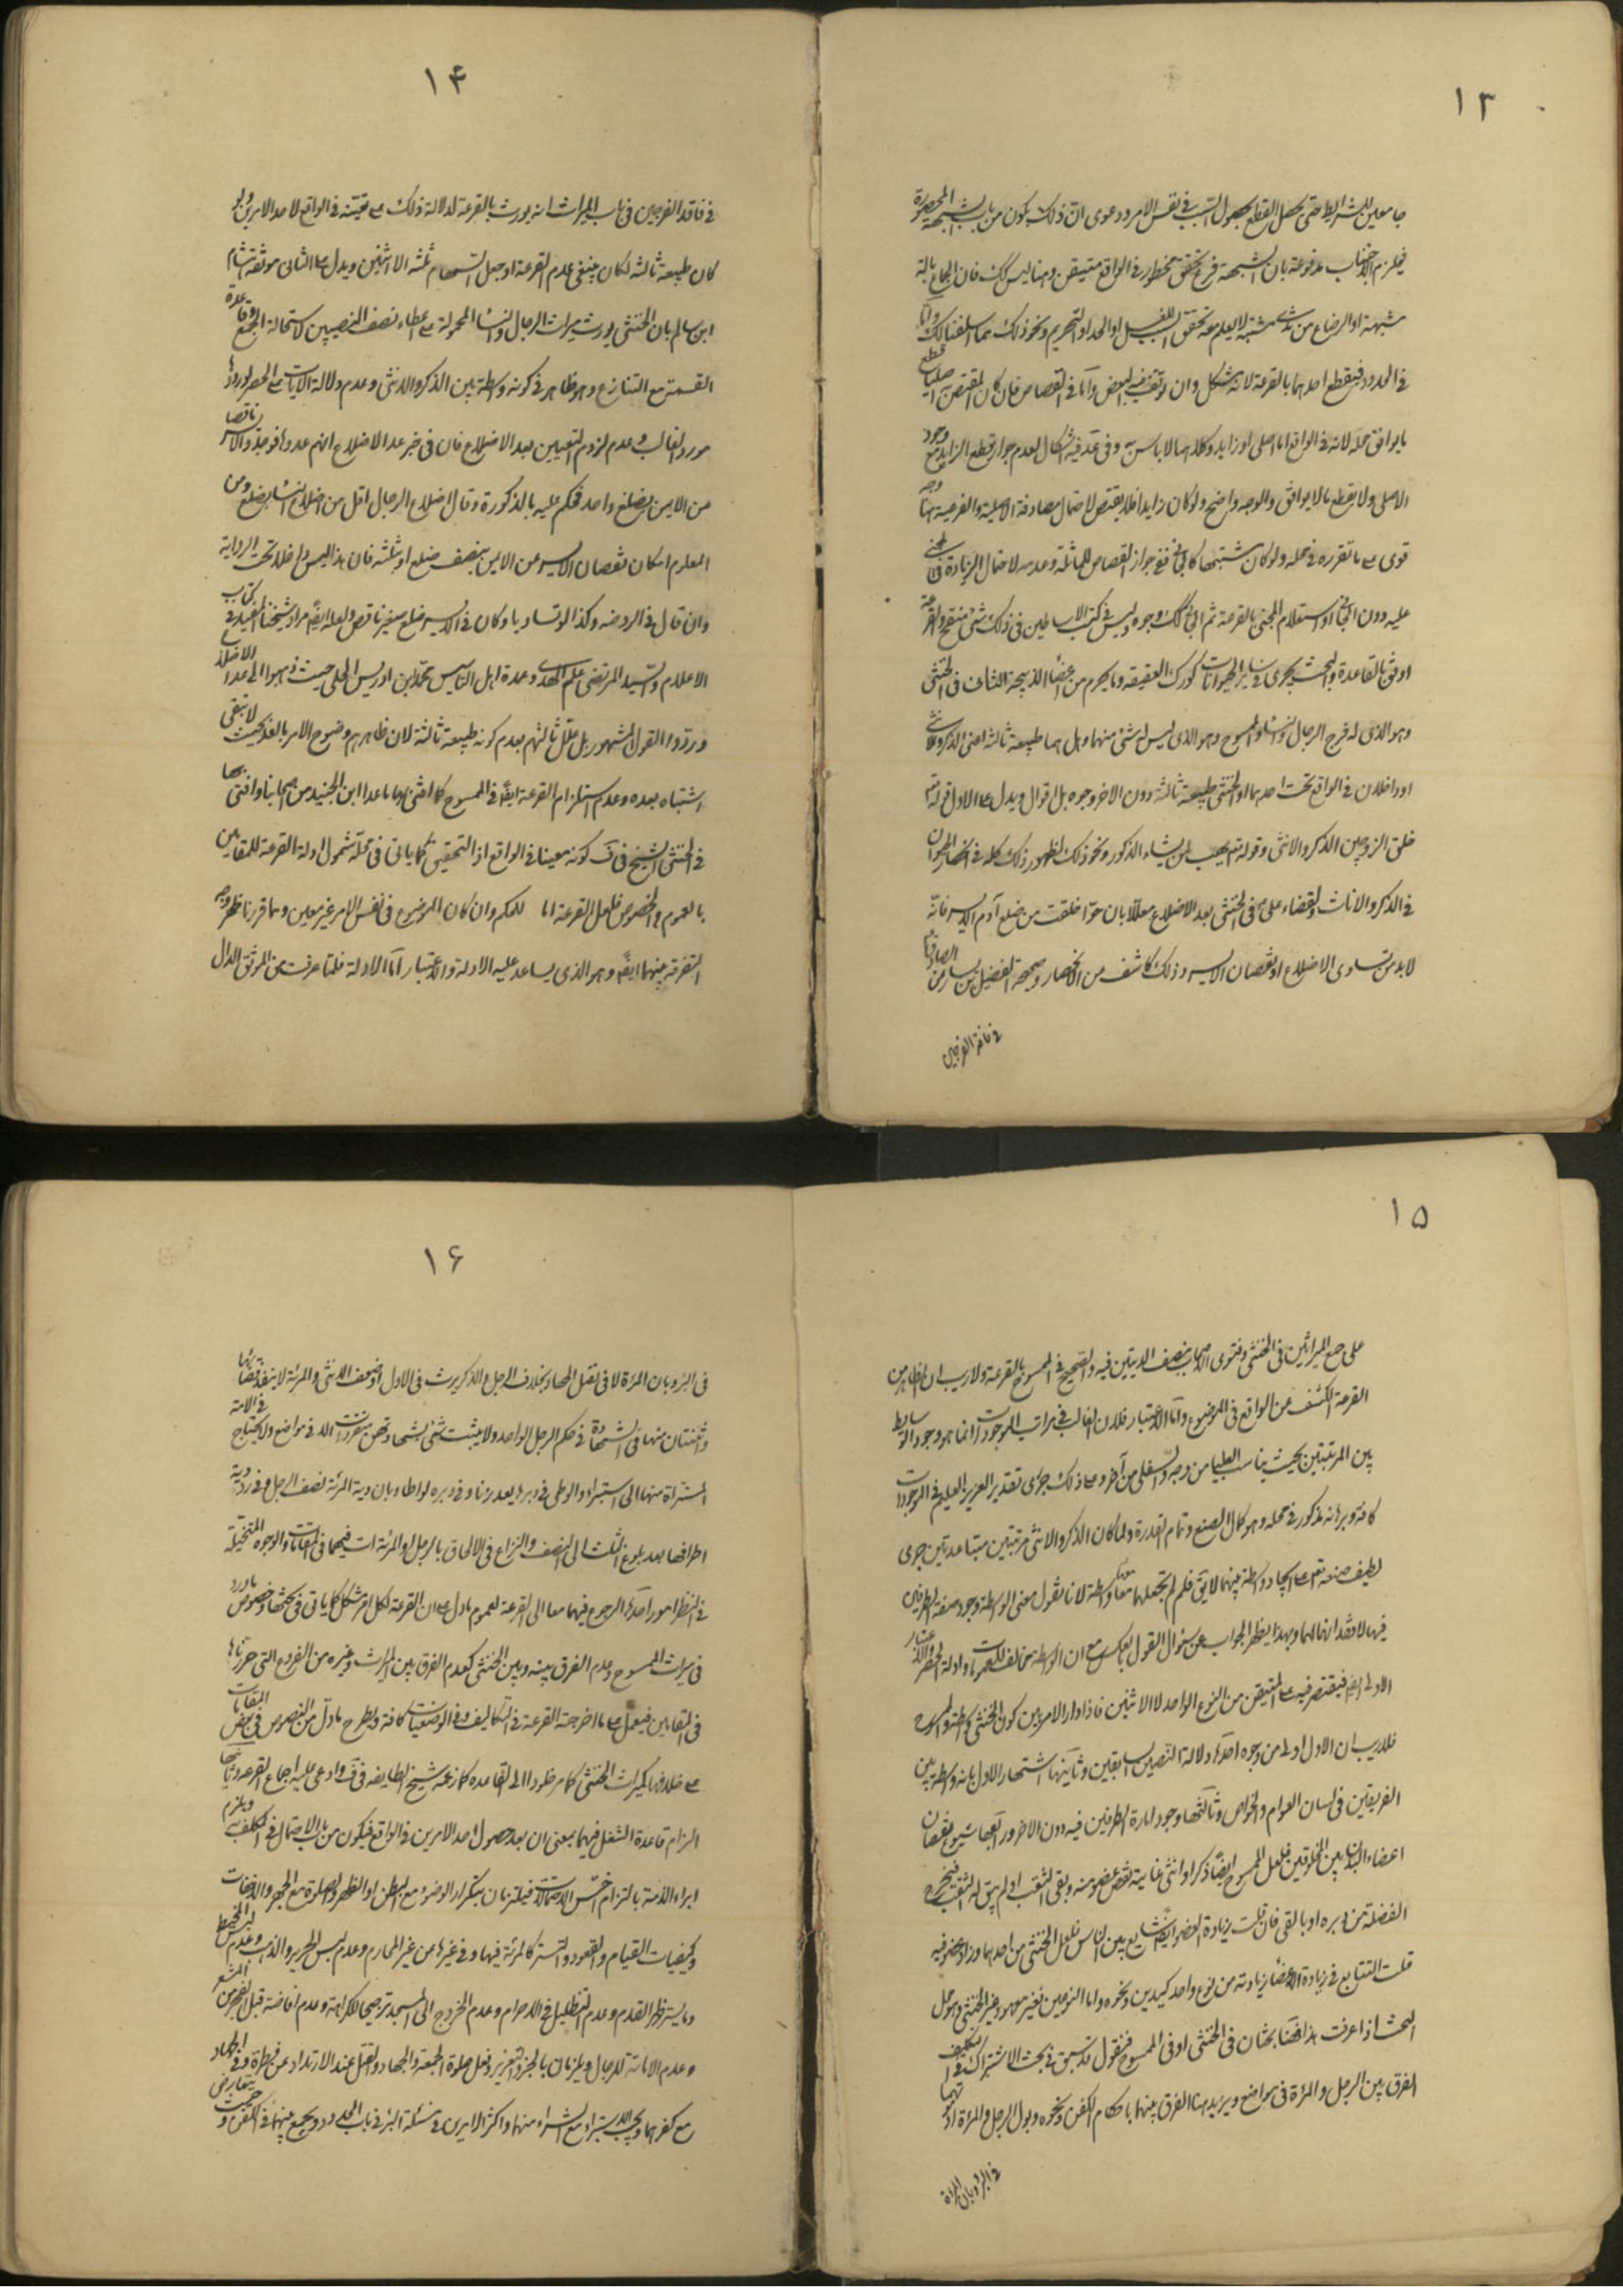 ١٣
جامعين للشرايط حتى يحصل القطع بحصول السبب في نفس الامر ودعوى ان ذلك يكون من باب الشبهة المحصورة
فيلزم الاجتناب مدفوعة بان الشبهة فرع تحقق محظور في الواقع متيقن وهنا ليس كك فان الجماع بالة
شبهة او الرضاع من ثدي مشتبه لا يعلم معه تحقق السبب للغسل او الحد او التحريم ونحو ذلك مما اسلفنا لك واما
في الحدود فيقطع احدهما بالقرعة لانه مشكل وان توقف فيه البعض واما في القصاص فان كان المقتص اصليا قطع
ما يوافق محله لانه في الواقع اما اصلي او زايد وكلاهما لا باس به وفي عد فيه اشكال لعدم جواز قطع الزايد مع وجود
الاصلي ولا يقطع ما لا يوافق والوجه واضح ولو كان زايدا فلا يقتص لاحتمال مصادفة الاصلية والفرعية هنا وجه
قوى على ما تقرر في محله ولو كان مشتبها كالجاني ففي جواز القصاص للمماثلة وعدمه لاحتمال الزيادة في المجني
عليه دون الجاني او استعلام المجني بالقرعة ثم الجاني كك وجوه وليس في كتب الاساطين في ذلك شئ منقح والقرعة
اوفق بالقاعدة والبحث يجري في ساير الحيوانات كورك العقيقة وما يحرم من اعضاء الذبيحة الثاني في الخنثى
وهو الذي له فرج الرجال والنساء والممسوح وهو الذي ليس له شئ منهما وهل هما طبيعة ثالثة اعني الذكر والانثى
او داخلان في الواقع تحت احدهما او الخنثى طبيعة ثالثة دون الاخر وجوه بل اقوال ويدل على الاول قوله تع
خلق الزوجين الذكر والانثى وقوله تع يهب لمن يشاء الذكور ونحو ذلك لظهور ذلك كله في انحصار الحيوان
في الذكر والاناث وقضاء علي ع في الخنثى بعد الاضلاع معللا بان حوا خلقت من ضلع آدم الايسر فانه
لابد من تساوى الاضلاع او نقصان الايسر وذلك كاشف من الانحصار وصحيحة الفضيل بن يسار عن الصادق ع
في فاقد الفرجين
١٤
في فاقد الفرجين في باب الميراث انه يورث بالقرعة لدلالة ذلك على تعينه في الواقع لاحد الامرين ولو
كان طبيعة ثالثة لكان ينبغي عدم القرعة او جعل السهام ثلثة لا اثنين ويدل على الثاني موثقة هشام
ابن سالم بان الخنثى يورث ميراث الرجال والنساء المحمولة على اعطاء نصف النصيبين لاستحالة الجمع وقاعدة
القسمة مع التنازع وهو ظاهر في كونه واسطة بين الذكر والانثى وعدم دلالة الايات على الحصر لورودها
مورد الغالب وعدم لزوم التعيين بعد الاضلاع فان في خبر عد الاضلاع انهم عدوها فوجدوا الايسر ناقصا
من الايمن بضلع واحد فحكم عليه بالذكورة وقال اضلاع الرجال اقل من اضلاع النساء بضلع ومن
المعلوم امكان نقصان الايسر عن الايمن بنصف ضلع او بثلثه فان هذا ليس داخلا تحت الرواية
وان قال في الروضة وكذا لو تساويا وكان في الايسر ضلع صغير ناقص ولعله ايضا مراد شيخنا المفيد في كتاب
الاعلام والسيد المرتضى علم الهدى وعمدة اهل التاسيس محمد بن ادريس الحلي حيث ذهبوا الى عد الاضلاع
وردوا القول المشهور بل علل ثالثهم بعدم كونه طبيعة ثالثة لان ظاهرهم وضوح الامر بالعد بحيث لا يبقى
اشتباه بعده وعدم استلزام القرعة ايضا في الممسوح كما افتى بها ما عدا ابن الجنيد من اصحابنا وافتى بها
في الخنثى الشيخ في ف كونه معينا في الواقع اذ التحقيق كما ياتي في محله شمول ادلة القرعة للمقامين
بالعموم والخصوص فلعل القرعة اما للحكم وان كان الموضوع في نفس الامر غير معين ومما قررنا ظهر وجه
التفرقة بينهما ايضا وهو الذي يساعد عليه الادلة والاعتبار اما الادلة فلما عرفت من الموثق الدال
١٥
على جمع الميراثين في الخنثى وفتوى الاصحاب بنصف الديتين فيه والصحيح في الممسوح بالقرعة ولا ريب ان الظاهر من
القرعة الكشف عن الواقع في الموضوع واما الاعتبار فلان الغالب في مراتب الموجودات انما هو وجود الوسايط
بين المرتبتين بحيث يناسب العليا من وجه والسفلى من آخر وعلى ذلك جرى تقدير العزيز العليم في الموجودات
كافة وبرهانه مذكور في محله وهو كمال الصنع وتمام القدرة ولما كان الذكر والانثى مرتبتين متباعدتين جرى
لطيف صنعه تعالى على ايجاد واسطة بينهما لا يق فلم لم تجعلهما معا واسطة لانا نقول معنى الواسطة وجود صفة الطرفين
فيها لا فقدانها لهما وبهذا يظهر الجواب عن سئوال القول بالعكس مع ان الواسطة مخالف للعمومات وادلة الحصر والاعتبار
الاولى ايضا فيقتصر فيه على المتيقن من النوع الواحد لا الاثنين فاذا دار الامر بين كون الخنثى واسطة والممسوح
فلا ريب ان الاول اولى من وجوه احدها دلالة النصين السابقين وثانيها اشتهار الاول بانه واسطة بين
الفريقين في لسان العوام والخواص وثالثها وجود امارة الطرفين فيه دون الاخر ورابعها شيوع نقصان
اعضاء البدن بين المخلوقين فلعل الممسوح ايضا ذكر او انثى غايته نقص عضو منه وبقى الثقب او لم يبق له الثقب فيخرج
الفضلة من دبره او بالقى فان قلت زيادة العضو ايضا شايع بين الناس فلعل الخنثى من احدهما وزاد عضو فيه
قلت الشايع في زيادة الاعضاء زيادته من نوع واحد كيدين ونحوه واما النوعين فغير معهود في غير الخنثى وهو محل
البحث اذا عرفت هذا فهنا بحثان في الخنثى او في الممسوح فنقول قد سبق في بحث الاشتراك في التكليف
الفرق بين الرجل والمرئة في مواضع ويزيد هنا الفرق بينهما باحكام الكفن ونحوه وبول الرجل والمرئة
في البئر وبان المراة
١٦
في البئر وبان المرئة لا في تقتل الجهاد بخلاف الرجل والذكر يرث في الاول ضعف الانثى والمرئة لا ينفذ قضائها
واثنتان منها في الشهادة في حكم الرجل الواحد ولا يثبت شئ بشهادتهن منفردات الا في مواضع ولا يحتاج في الامة
المشتراة منها الى استبراء والوطى في دبرها يعد زنا وفي دبره لواطا وبان دية المرئة نصف الرجل وفي دية
اطرافها بعد بلوغ الثلث الى النصف والنزاع في الالحاق بالرجل او المرئة ات فيهما في المقامات والوجوه المتخيلة
في النظر امور احدها الرجوع فيهما معا الى القرعة لعموم ما دل على ان القرعة لكل امر مشكل كما ياتي في بحثها وخصوص ما ورد
في ميراث الممسوح وعدم الفرق بينه وبين الخنثى كعدم الفرق بين الميراث وغيره من الفروع التي حررناها
في المقامين فيعمل على ما اخرجته القرعة في التكاليف وفي الوضعيات كافة ويطرح ما دل من النصوص في بعض المقامات
على خلافها كميراث الخنثى كما مر طردا الى القاعدة كما زعمه شيخ الطايفة في ف وادعى عليه اجماع الفرقة وثانيها
الزام قاعدة الشغل فيهما بمعنى ان بعد حصول احد الامرين في الواقع فيكون من باب الاجمال في المكلف به ويلزم
ابراء الذمة بالتزام اخس الاحتمالات فيلتزمان بتكرار الوضوء مع البطن او الظهر والصلوة مع الجهر والاخفات
وكيفيات القيام والقعود والتستر كالمرئة فيها وفي غيرها من غير المحارم وعدم لبس الحرير والذهب وعدم لبس المخيط
وما يستر ظهر القدم وعدم التظليل في الاحرام وعدم الخروج الى المسجد ترجيحا للكراهة وعدم افاضة قبل الفجر من المشعر
وعدم الامامة للرجال ويلزمان بالجز والتعزير وفعل صلوة الجمعة والجهاد والقتل عند الارتداد عن فطرة وفي الجهاد
مع كفرهما ويجب الاستبراء مع الشراء منهما واكثر الامرين في مسئلة البئر في باب الحدود ويجمع بينهما في الكفن و